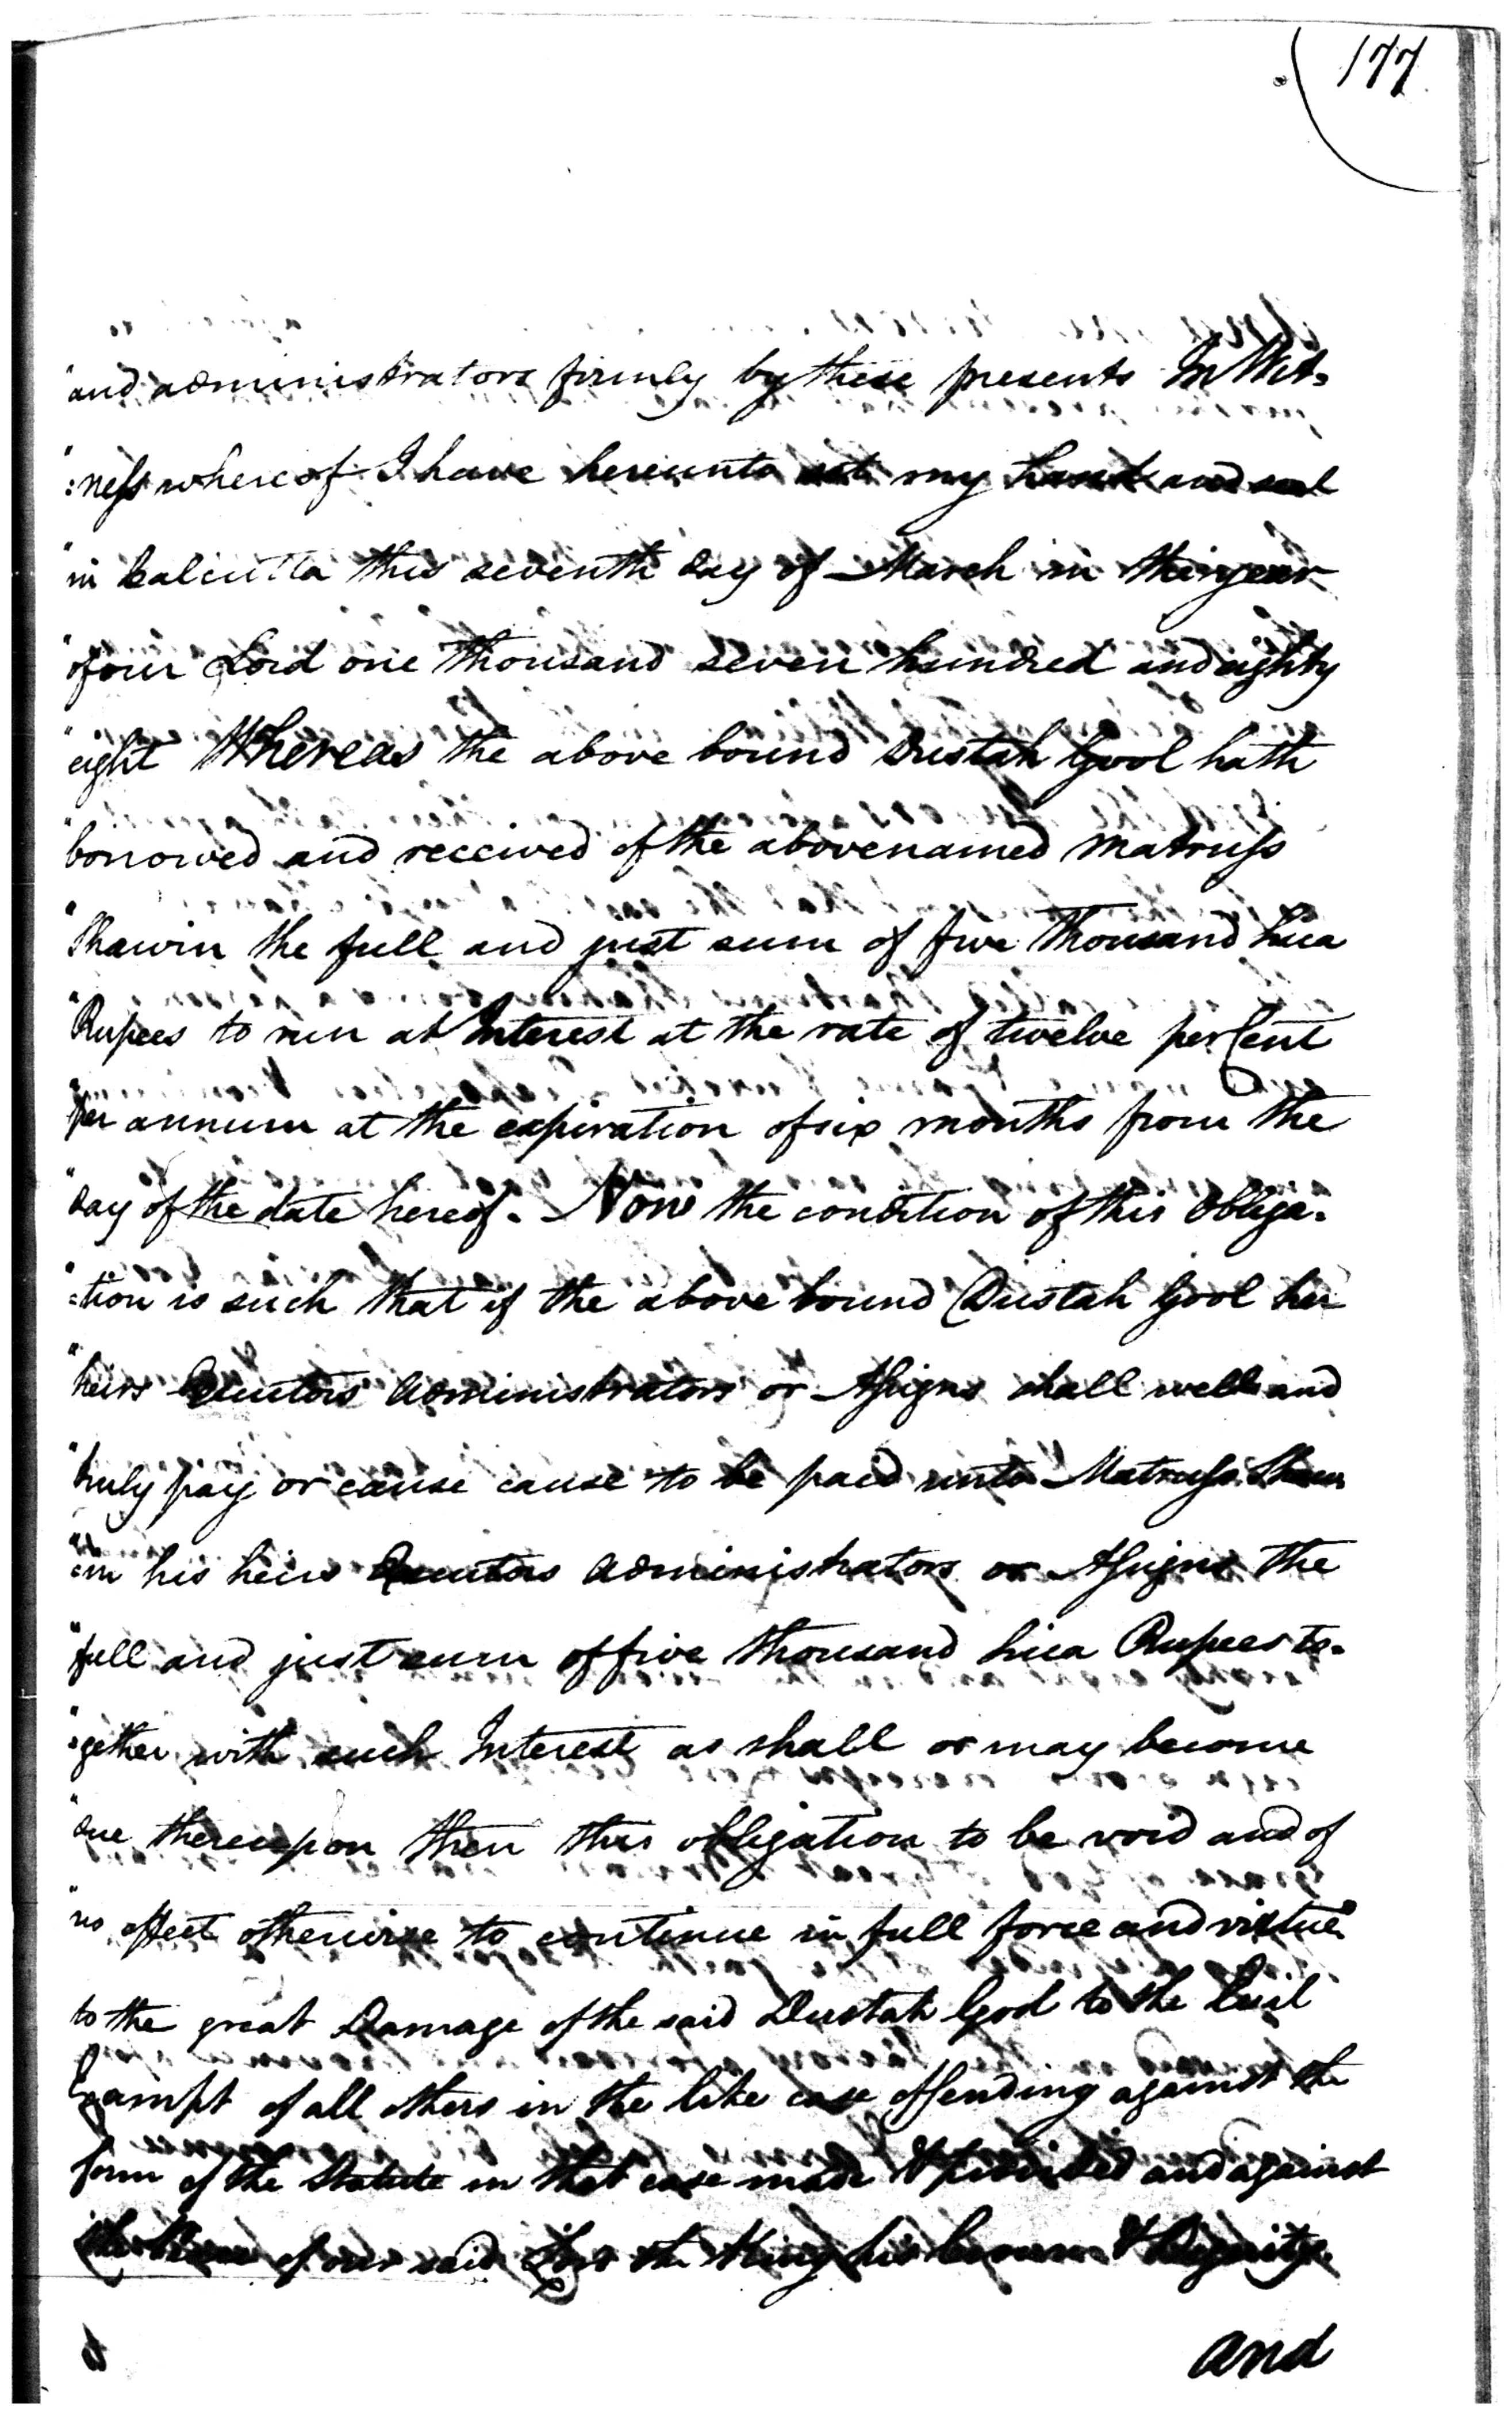 177
"and administrators firmly by these presents In Wit=
":ness whereof I have hereunto set my hand and seal
"in Calcutta this seventh day of March in the year
"of our Lord one thousand seven hundred and eighty
"eight Whereas the above bound Dustah Gool hath
"borrowed and received of the abovenamed Matruss
"Thawin the full and just sum of five Thousand Sicca
"Rupees to run at Interest at the rate of twelve per Cent
"per annum at the expiration of six months from the
"day of the date hereof. Now the condition of this Obliga=
":tion is such that if the above bound Dustah Gool her
"heirs Executors Administrators or Assigns shall well and
"truly pay or cause cause to be paid unto Matruss Thaw
":in his heirs Executors Administrators or Assigns the
"full and just sum of five thousand Sicca Rupees to=
":gether with such Interest as shall or may become
"due thereupon then this obligation to be void and of
"no effect otherwise to continue in full force and virtue"
to the great Damage of the said Dustah Gool to the Evil
Exampt of all others in the like case offending against the
form of the Statute in that case made & provided and against
the of our said Lord the King his Crown & Dignity
and